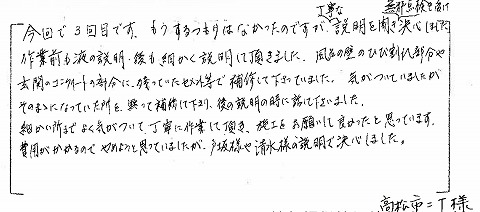 丁寧な 無料点検を含け
今回で3回目です。もうするつもりはなかったのですが、説明を聞き決心しました
作業前も後の説明・後も細かく説明して頂きました。風呂の壁のひび割れ部分や
玄関のコンクリートの部分に、残っていたセメント等で補修して下さっていました。気がついていましたが
そのままになっていた所を、黙って補修して下さり、後の説明の時に話して下さいました。
細かい所までよく気がついて、丁寧に作業して頂き、施工をお願いして良かったと思っています。
費用がかかるのでやめようと思っていましたが、戸坂様や清水様の説明で決心しました。
高松市 = T様